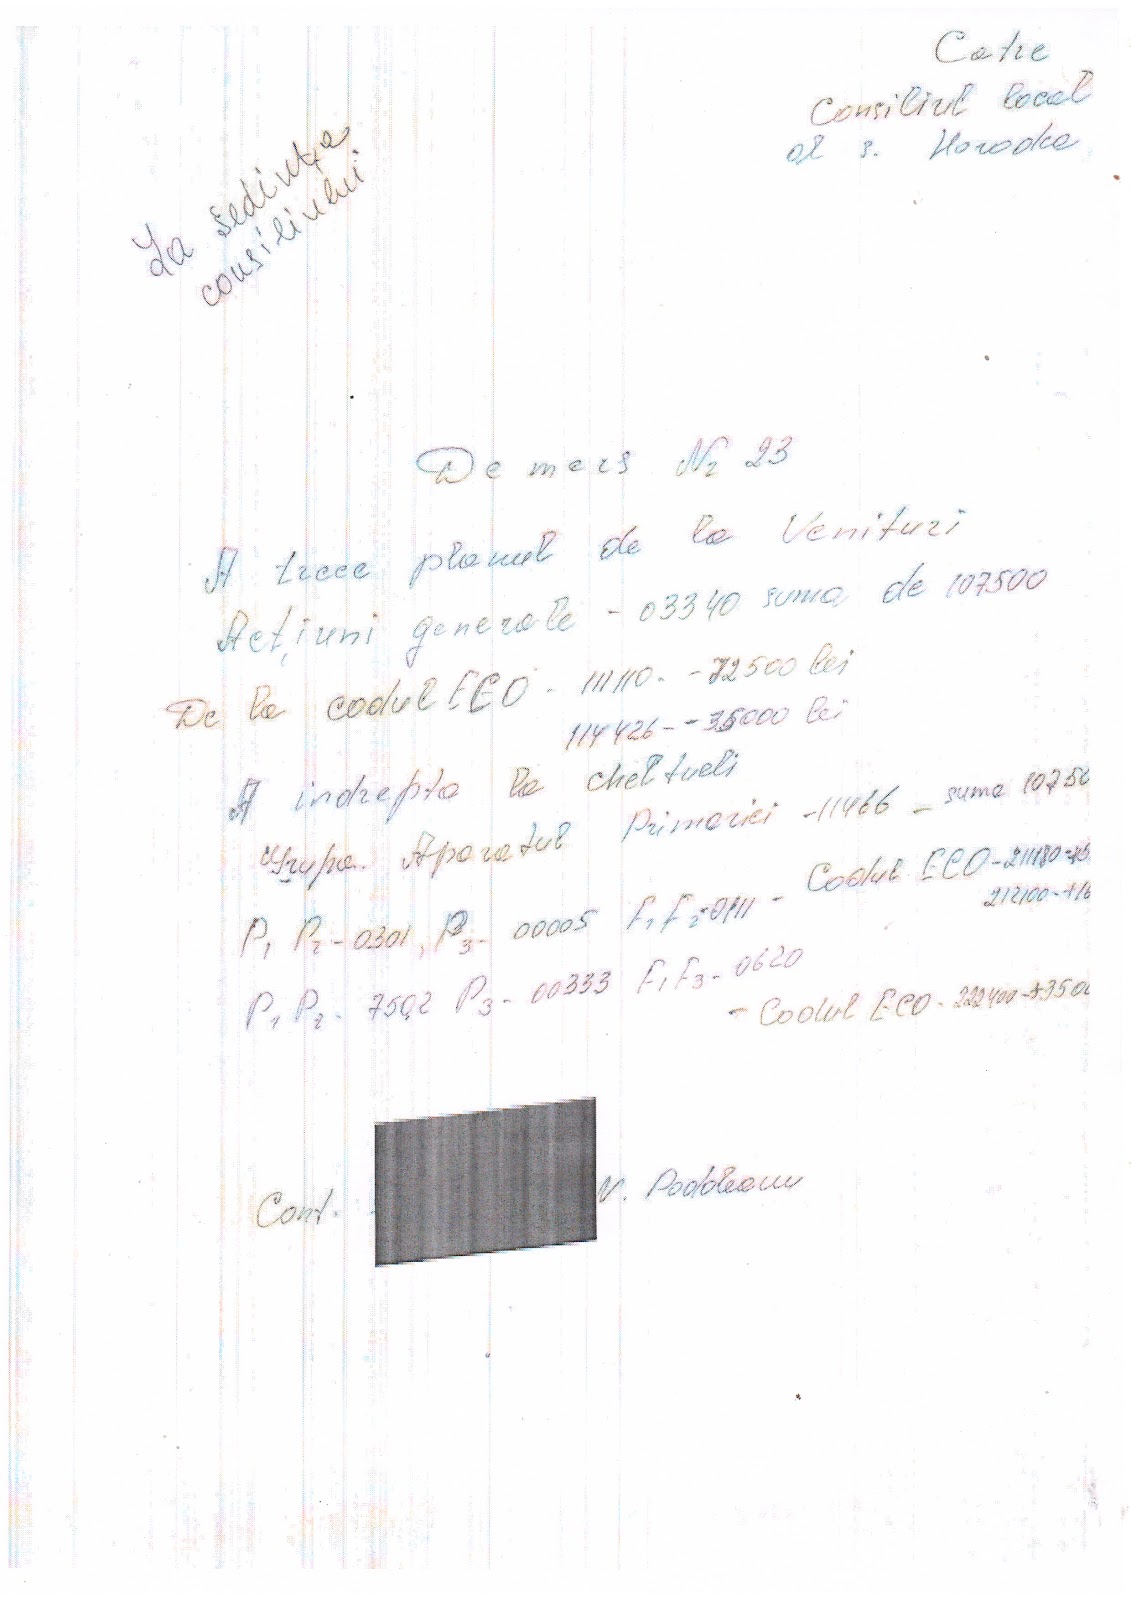 Catre
Consiliul local
al s. Horodca
La ședința
consiliului
Demers Nr 23
A trece planul de la Venituri
Acțiuni generale - 03340 suma de 107500
De la codul ECO - 111110. - -72500 lei
114426 - -35000 lei
A indrepta la cheltueli
Grupa. Aparatul Primariei - 11466 - suma 10750
P1 P2 - 0301, P3 - 00005 F1 F2 - 0111 - Codul ECO - 211180
212100
P1 P2 - 7502 P3 - 00333 F1 F3 - 0620
- Codul ECO - 222400 - +3500
Cont. N. Podoleanu